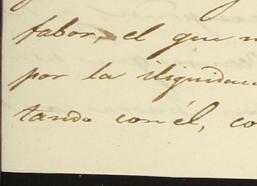 fabor, el que n
por la iliquidac
tando con él, co